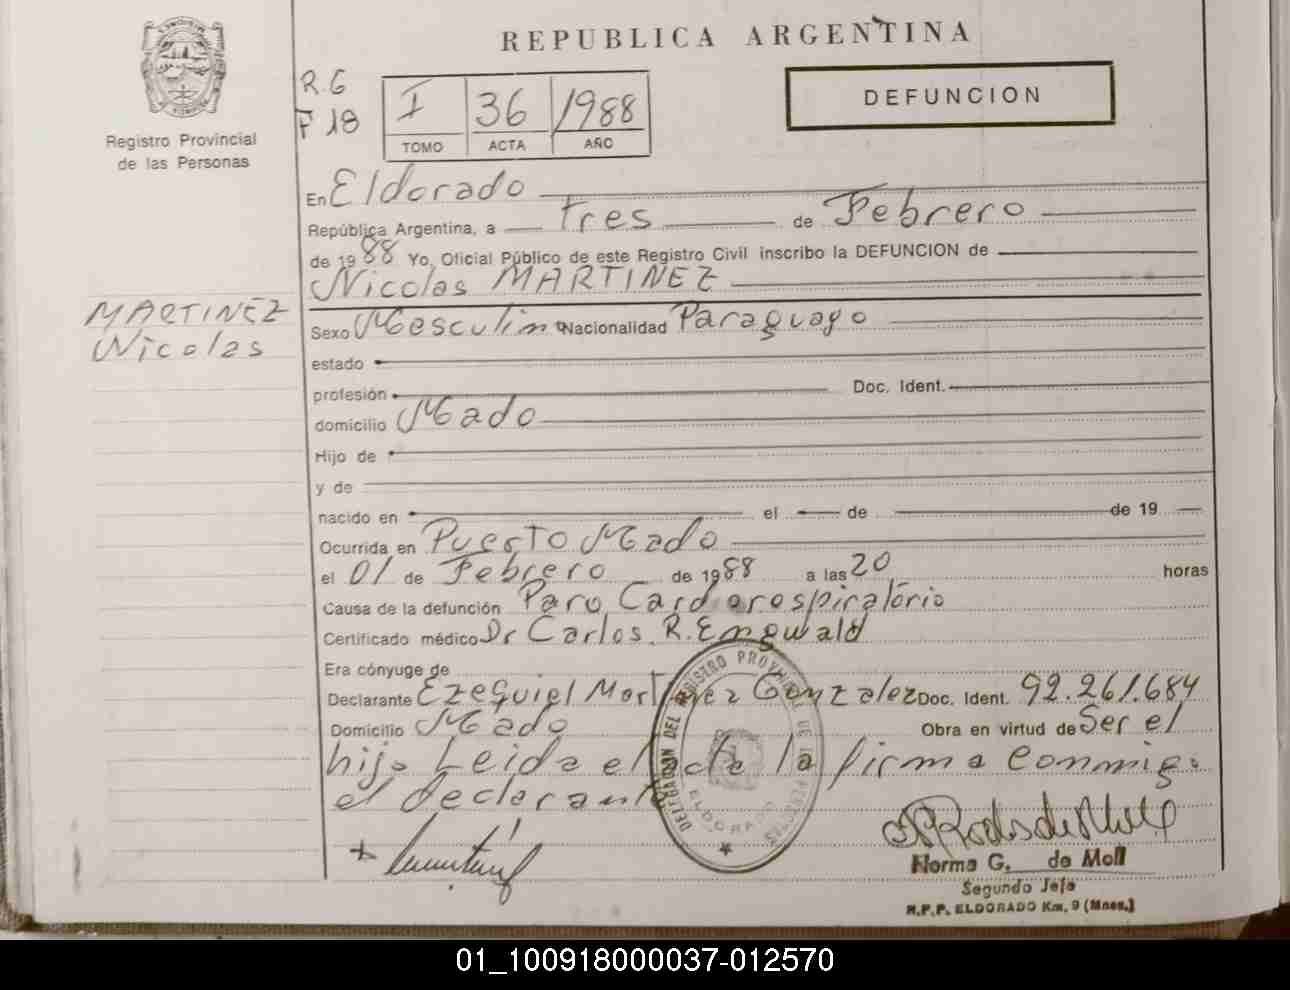 REPUBLICA ARGENTINA
Registro Provincial
de las Personas
R.G
F 18
I 36 1988
TOMO ACTA AÑO
DEFUNCION
En Eldorado
República Argentina, a tres de Febrero
de 1988 Yo, Oficial Público de este Registro Civil inscribo la DEFUNCION de
Nicolas MARTINEZ
MARTINEZ
Nicolas
Sexo Masculino Nacionalidad Paraguayo
estado
profesión Doc. Ident.
domicilio Mado
Hijo de
y de
nacido en el de de 19
Ocurrida en Puerto Mado
el 01 de Febrero de 1988 a las 20 horas
Causa de la defunción Paro Cardiorespiratório
Certificado médico Dr Carlos R. Emgwald
Era cónyuge de
Declarante Ezequiel Martinez Gonzalez Doc. Ident. 92.261.684
Domicilio Mado Obra en virtud de Ser el
hijo Leida el acta la firma conmigo
el declarante
DELEGACION DEL REGISTRO PROVINCIAL DE LAS PERSONAS
ELDORADO
Norma G. de Moll
Segundo Jefe
R.P.P. ELDORADO Km. 9 (Mnes.)
01_100918000037-012570